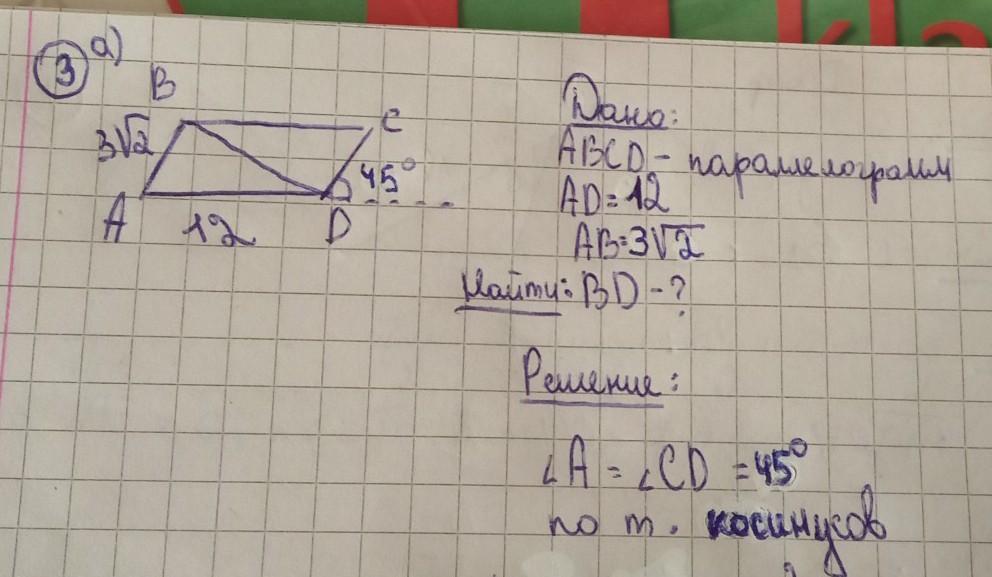 3 а)
B
C
3√2
45°
A
12
D
Дано:
ABCD - параллелограмм
AD=12
AB=3√2
Найти: BD - ?
Решение:
∠A = ∠CD = 45°
по т. косинусов